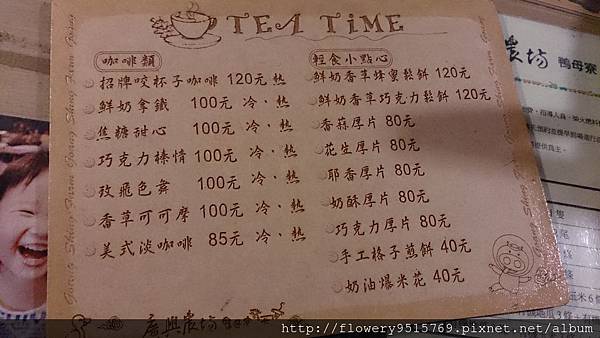 TEA TiME
咖啡類
招牌咬杯子咖啡 120元 熱
鮮奶拿鐵 100元 冷、熱
焦糖甜心 100元 冷、熱
巧克力榛情 100元 冷、熱
玫飛色舞 100元 冷、熱
香草可可摩 100元 冷、熱
美式淡咖啡 85元 冷、熱
輕食小點心
鮮奶香草蜂蜜鬆餅 120元
鮮奶香草巧克力鬆餅 120元
香蒜厚片 80元
花生厚片 80元
耶香厚片 80元
奶酥厚片 80元
巧克力厚片 80元
手工格子煎餅 40元
奶油爆米花 40元
廣興農坊
農坊 鴨母寮
http://flowery9515769.pixnet.net/album